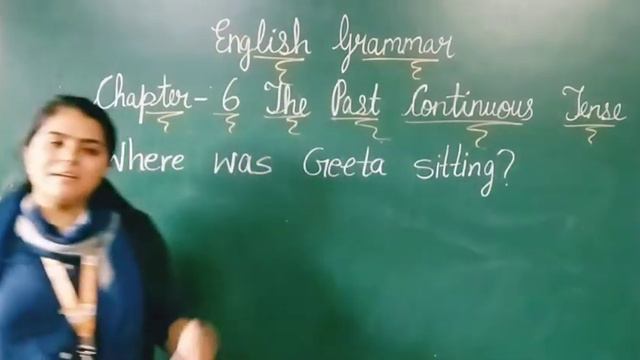 English Grammar
Chapter- 6 The Past Continuous Tense
Where was Geeta sitting?